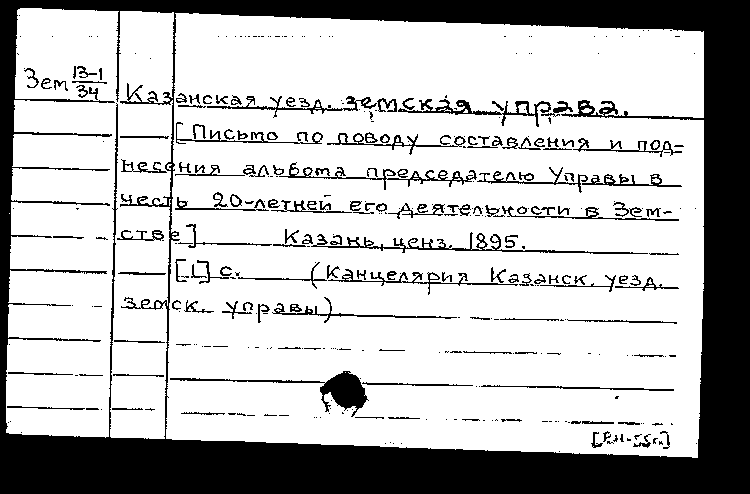 Зем 13-1/34
Казанская уезд. земская управа.
[Письмо по поводу составления и под=
несения альбома председателю Управы в
честь 20-летней его деятельности в Зем-
стве]. Казань, ценз. 1895.
[1] с. (Канцелярия Казанск. уезд.
земск. управы).